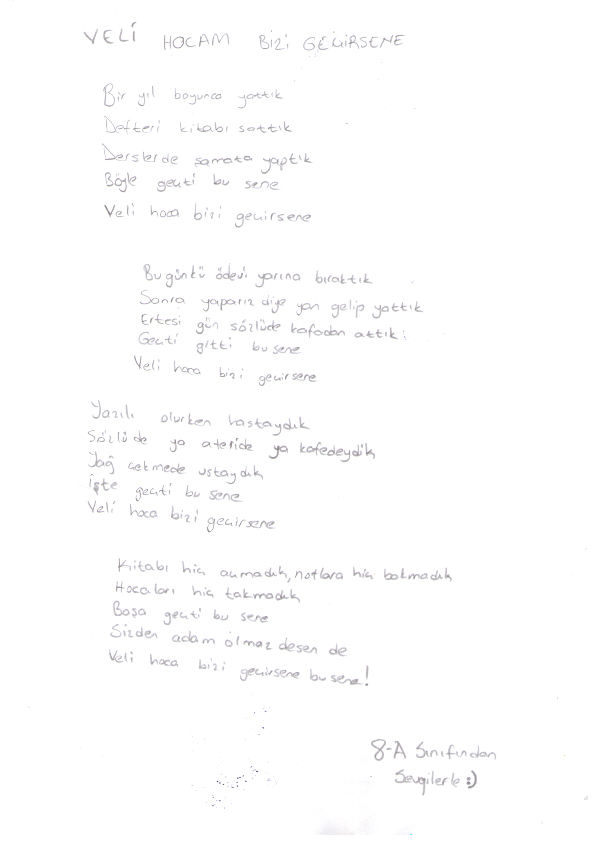 VELİ HOCAM BİZİ GEÇİRSENE
Bir yıl boyunca yattık
Defteri kitabı sattık
Derslerde şamata yaptık
Böyle geçti bu sene
Veli hoca bizi geçirsene
Bugünkü ödevi yarına bıraktık
Sonra yaparız diye yan gelip yattık
Ertesi gün sözlüde kafadan attık
Geçti gitti bu sene
Veli hoca bizi geçirsene
Yazılı olurken hastaydık
Sözlüde ya ateride ya kafedeydik
Yağ çekmede ustaydık
İşte geçti bu sene
Veli hoca bizi geçirsene
Kitabı hiç açmadık, notlara hiç bakmadık
Hocaları hiç takmadık
Boşa geçti bu sene
Sizden adam olmaz desen de
Veli hoca bizi geçirsene bu sene!
8-A Sınıfından
Sevgilerle :)